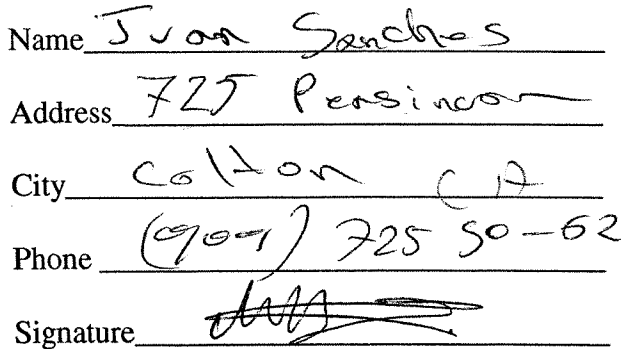 Name Juan Sanches
Address 725 Persincon
City Colton CA
Phone (909) 725 50-62
Signature